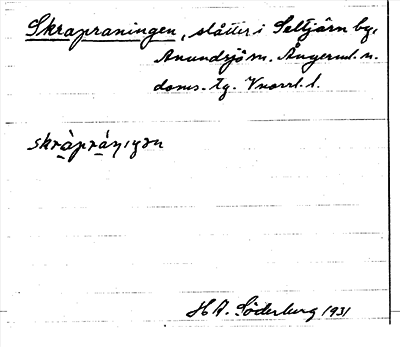 Skrapraningen, slåtter i Seltjärn by,
Anundsjö sn. Ångerml. n.
doms. tg. Vnorrl. l.
skràpráŋıgən
H A. Söderberg 1931